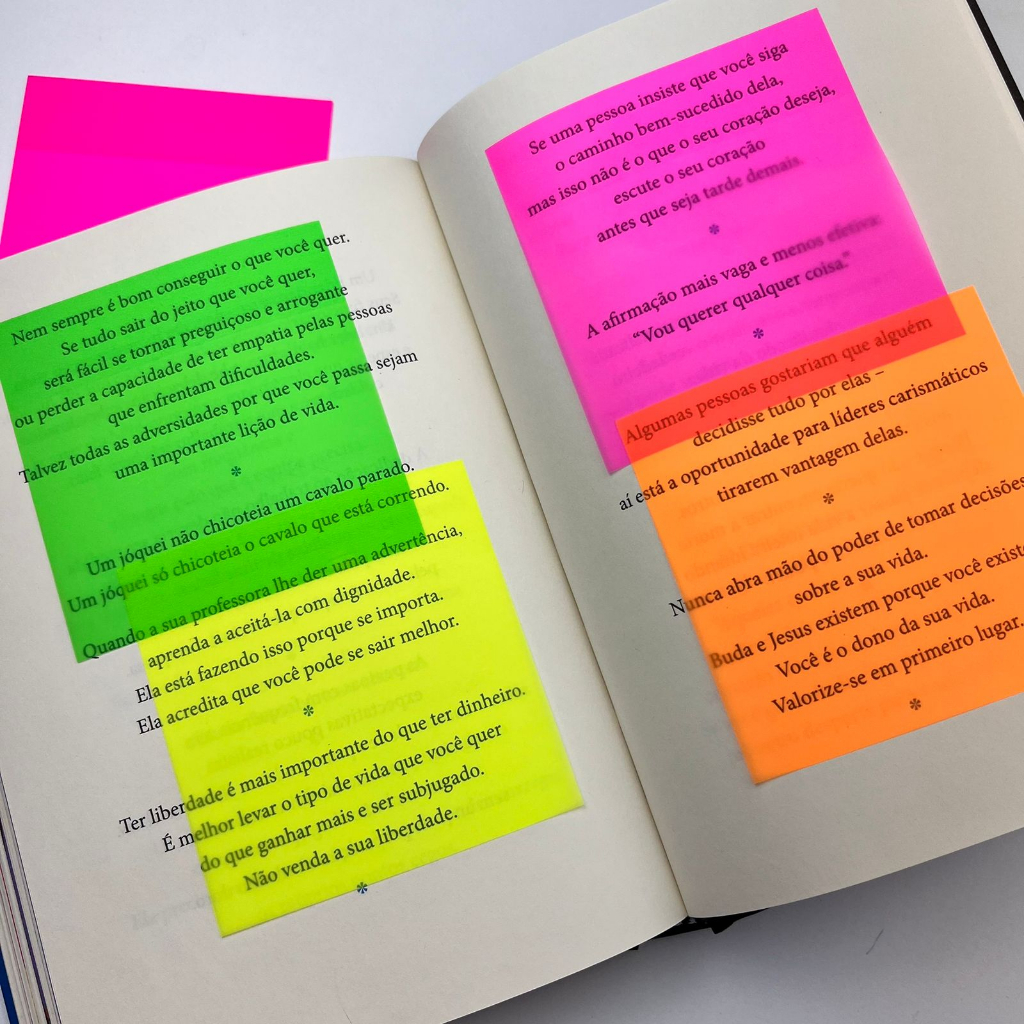 Nem sempre é bom conseguir o que você quer.
Se tudo sair do jeito que você quer,
será fácil se tornar preguiçoso e arrogante
ou perder a capacidade de ter empatia pelas pessoas
que enfrentam dificuldades.
Talvez todas as adversidades por que você passa sejam
uma importante lição de vida.
*
Um jóquei não chicoteia um cavalo parado.
Um jóquei só chicoteia o cavalo que está correndo.
Quando a sua professora lhe der uma advertência,
aprenda a aceitá-la com dignidade.
Ela está fazendo isso porque se importa.
Ela acredita que você pode se sair melhor.
*
Ter liberdade é mais importante do que ter dinheiro.
É melhor levar o tipo de vida que você quer
do que ganhar mais e ser subjugado.
Não venda a sua liberdade.
*
Se uma pessoa insiste que você siga
o caminho bem-sucedido dela,
mas isso não é o que o seu coração deseja,
escute o seu coração
antes que seja tarde demais.
*
A afirmação mais vaga e menos efetiva:
“Vou querer qualquer coisa.”
*
Algumas pessoas gostariam que alguém
decidisse tudo por elas –
aí está a oportunidade para líderes carismáticos
tirarem vantagem delas.
*
Nunca abra mão do poder de tomar decisões
sobre a sua vida.
Buda e Jesus existem porque você
Você é o dono da sua vida.
Valorize-se em primeiro lugar.
*